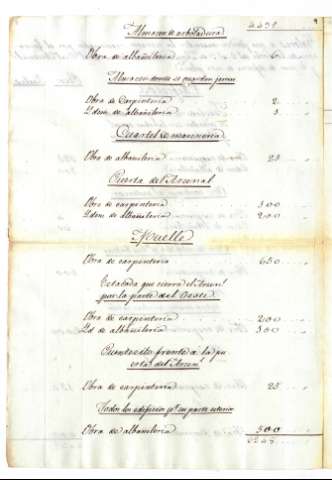 Almacen de arboladura 2.238
Obra de albañileria 6
Almacen donde se guardan
Obra de Carpenteria 2
Idem de albañileria 3
Cuartel de marineria
Obra de albañileria 25
Puerta del Arsenal
Obra de carpenteria 300
Idem de albañileria 200
Muelle
Obra de carpenteria 650
Estacada que cierra el Arsenl
por la parte del Oeste
Obra de carpenteria 200
Id de albañileria 300
Puentecito frente a la pu
erta del Arsenl
Obra de carpenteria 25
Todos los edificios pr su parte exterior
Obra de albañileria 500